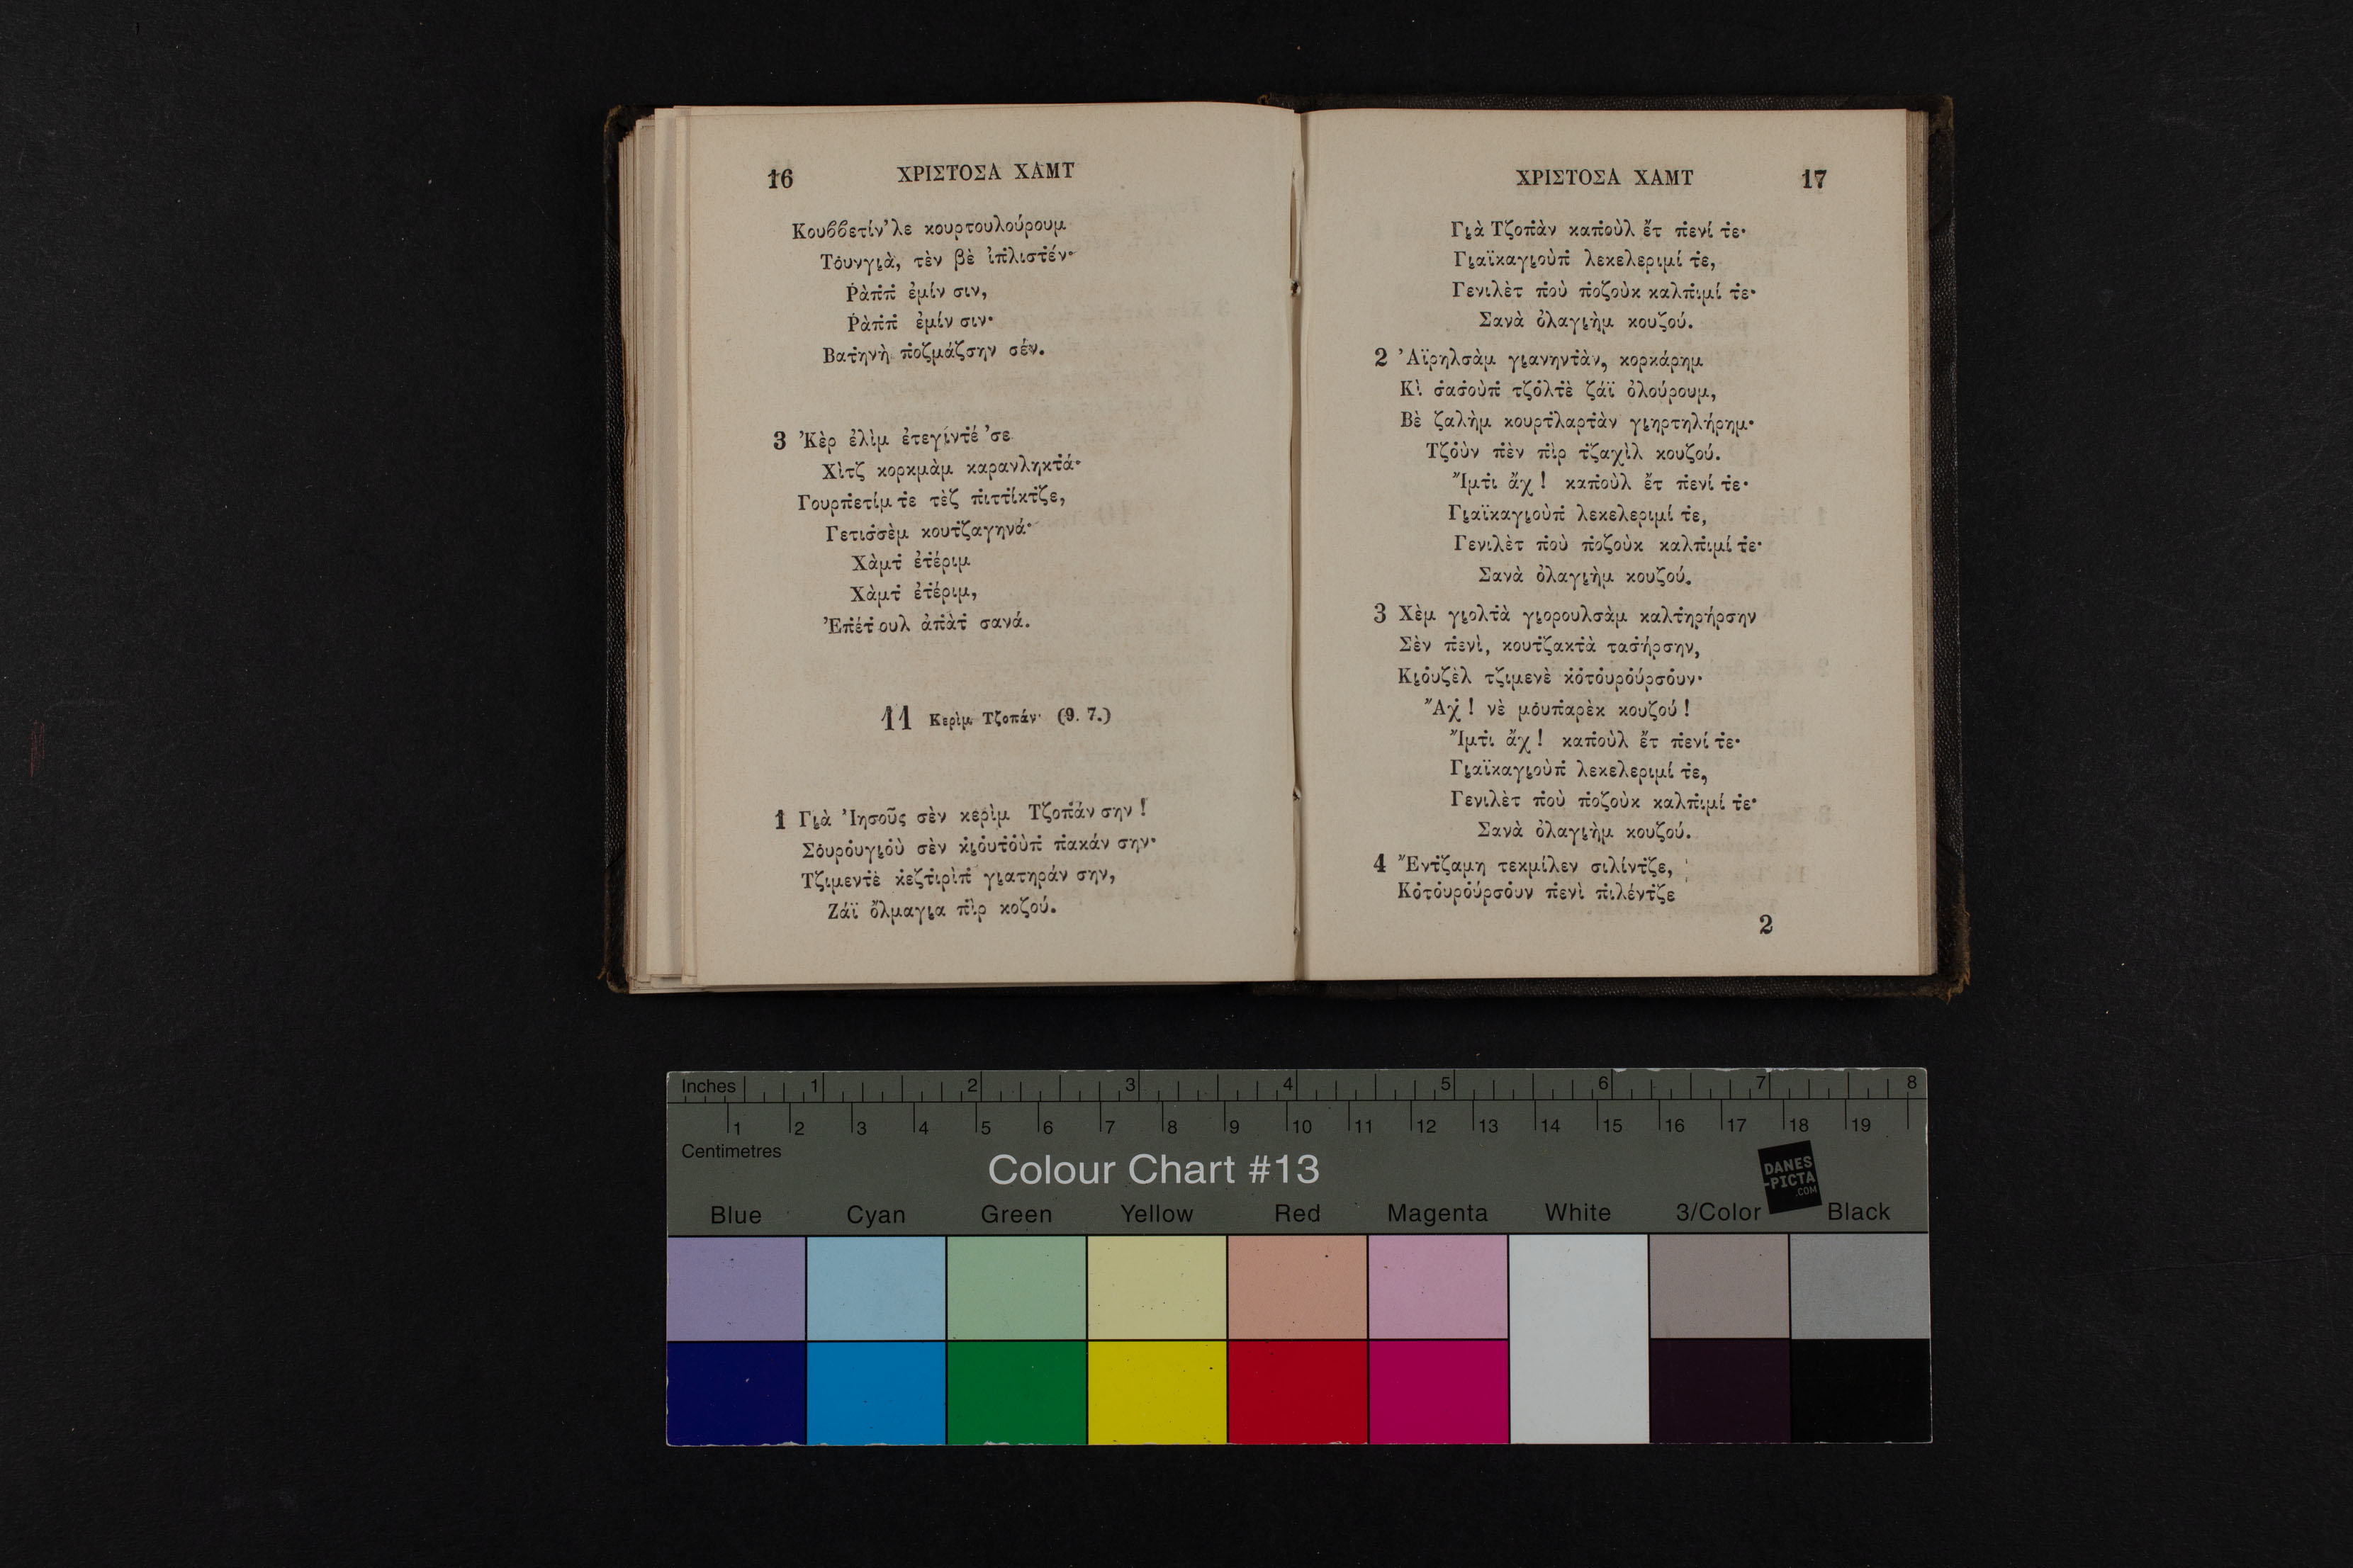 16 ΧΡΙΣΤΟΣΑ ΧΑΜΤ
Κουϐϐετίν’λε κουρτουλούρουμ
Τὀυνγι̰ὰ, τὲν βὲ ἰπ̇λιστ̇έν·
Ῥὰπ̇π̇ ἐμίν σιν,
Ῥὰπ̇π̇ ἐμίν σιν·
Βατ̇ηνὴ π̇οζμάζσην σέν.
3 Ἐ̓κὲρ ἐλὶμ ἐτεγίντ̇έ ’σε
Χὶτζ κορκμὰμ καρανληκτ̇ά·
Γουρπ̇ετίμ τ̇ε τὲζ π̇ιττίκτ̇ζε,
Γετισ̇σ̇ὲμ κουτ̇ζαγηνά·
Χὰμτ̇ ἐτ̇έριμ
Χὰμτ̇ ἐτ̇έριμ,
Ἐπ̇έτ̇ουλ ἀπ̇ὰτ̇ σανά.
11 Κερὶμ Τζοπάν· (9. 7.)
1 Γι̰ὰ Ἰησοῦς σὲν κερὶμ Τζοπ̇άν σην!
Σὀυρὀυγι̰ὀὺ σὲν κ̇ι̰ὀυτὀὺπ̇ π̇ακάν σην·
Τζιμεντ̇ὲ κ̇εζτ̇ιρὶπ̇ γι̰ατηράν σην,
Ζάϊ ὄλμαγι̰α π̇ὶρ κοζού.
ΧΡΙΣΤΟΣΑ ΧΑΜΤ 17
Γι̰ὰ Τζοπ̇ὰν καπ̇οὺλ ἔτ π̇ενί τ̇ε·
Γι̰αϊκαγι̰οὺπ̇ λεκελεριμί τ̇ε,
Γενιλὲτ π̇οὺ π̇οζοὺκ καλπ̇ιμί τ̇ε·
Σανὰ ὀλαγι̰ὴμ κουζού.
2 Ἀϊρηλσὰμ γι̰ανηντ̇ὰν, κορκάρημ
Κὶ σ̇ασ̇οὺπ̇ τζὀλτ̇ὲ ζάϊ ὀλούρουμ,
Βὲ ζαλὴμ κουρτ̇λαρτ̇ὰν γι̰ηρτηλήρημ·
Τζὀὺν π̇ὲν π̇ὶρ τ̇ζαχὶλ κουζού.
Ἴμτ̇ι ἄχ! καπ̇οὺλ ἔτ π̇ενί τ̇ε·
Γι̰αϊκαγι̰οὺπ̇ λεκελεριμί τ̇ε,
Γενιλὲτ π̇οὺ π̇οζοὺκ καλπ̇ιμί τ̇ε·
Σανὰ ὀλαγι̰ὴμ κουζού.
3 Χὲμ γι̰ολτ̇ὰ γι̰ορουλσὰμ καλτ̇ηρήρσην
Σὲν π̇ενὶ, κουτ̇ζακτ̇ὰ τασ̇ήρσην,
Κι̰ὀυζὲλ τζιμενὲ κ̇ὀτ̇ὀυρὀύρσὀυν·
Ἄχ̇! νὲ μὀυπ̇αρὲκ κουζού!
Ἴμτ̇ι ἄχ! καπ̇οὺλ ἔτ π̇ενί τ̇ε·
Γι̰αϊκαγι̰οὺπ̇ λεκελεριμί τ̇ε,
Γενιλὲτ π̇οὺ π̇οζοὺκ καλπ̇ιμί τ̇ε·
Σανὰ ὀλαγι̰ὴμ κουζού.
4 Ἔντ̇ζαμη τεκμίλεν σιλίντ̇ζε,
Κὀτ̇ὀυρὀύρσὀυν π̇ενὶ π̇ιλέντ̇ζε
2
Inches 1 2 3 4 5 6 7 8
1 2 3 4 5 6 7 8 9 10 11 12 13 14 15 16 17 18 19
Centimetres
Colour Chart #13
DANES
-PICTA
.COM
Blue Cyan Green Yellow Red Magenta White 3/Color Black